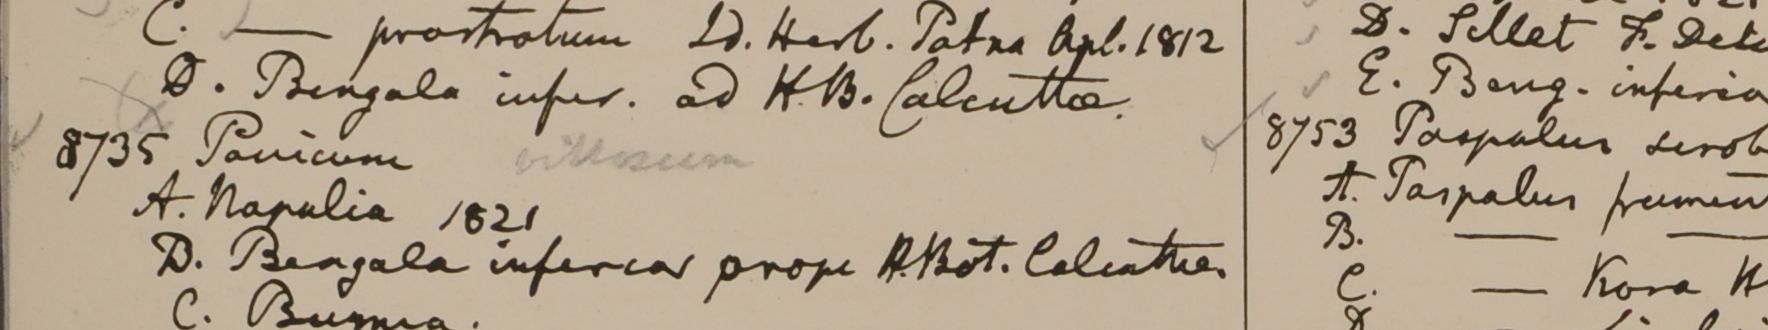 C. — prostratum Id. Herb. Patna Apl. 1812
D. Bengala infer. ad H.B. Calcuttae.
8735 Panicum villosum
A. Napulia 1821
B. Bengala inferior prope H. Bot. Calcuttae.
C. Burma.
D. Sillet F. De
E. Beng. inferio
8753 Paspalus scrob
A. Paspalus frument
B. — —
C. — Kora H